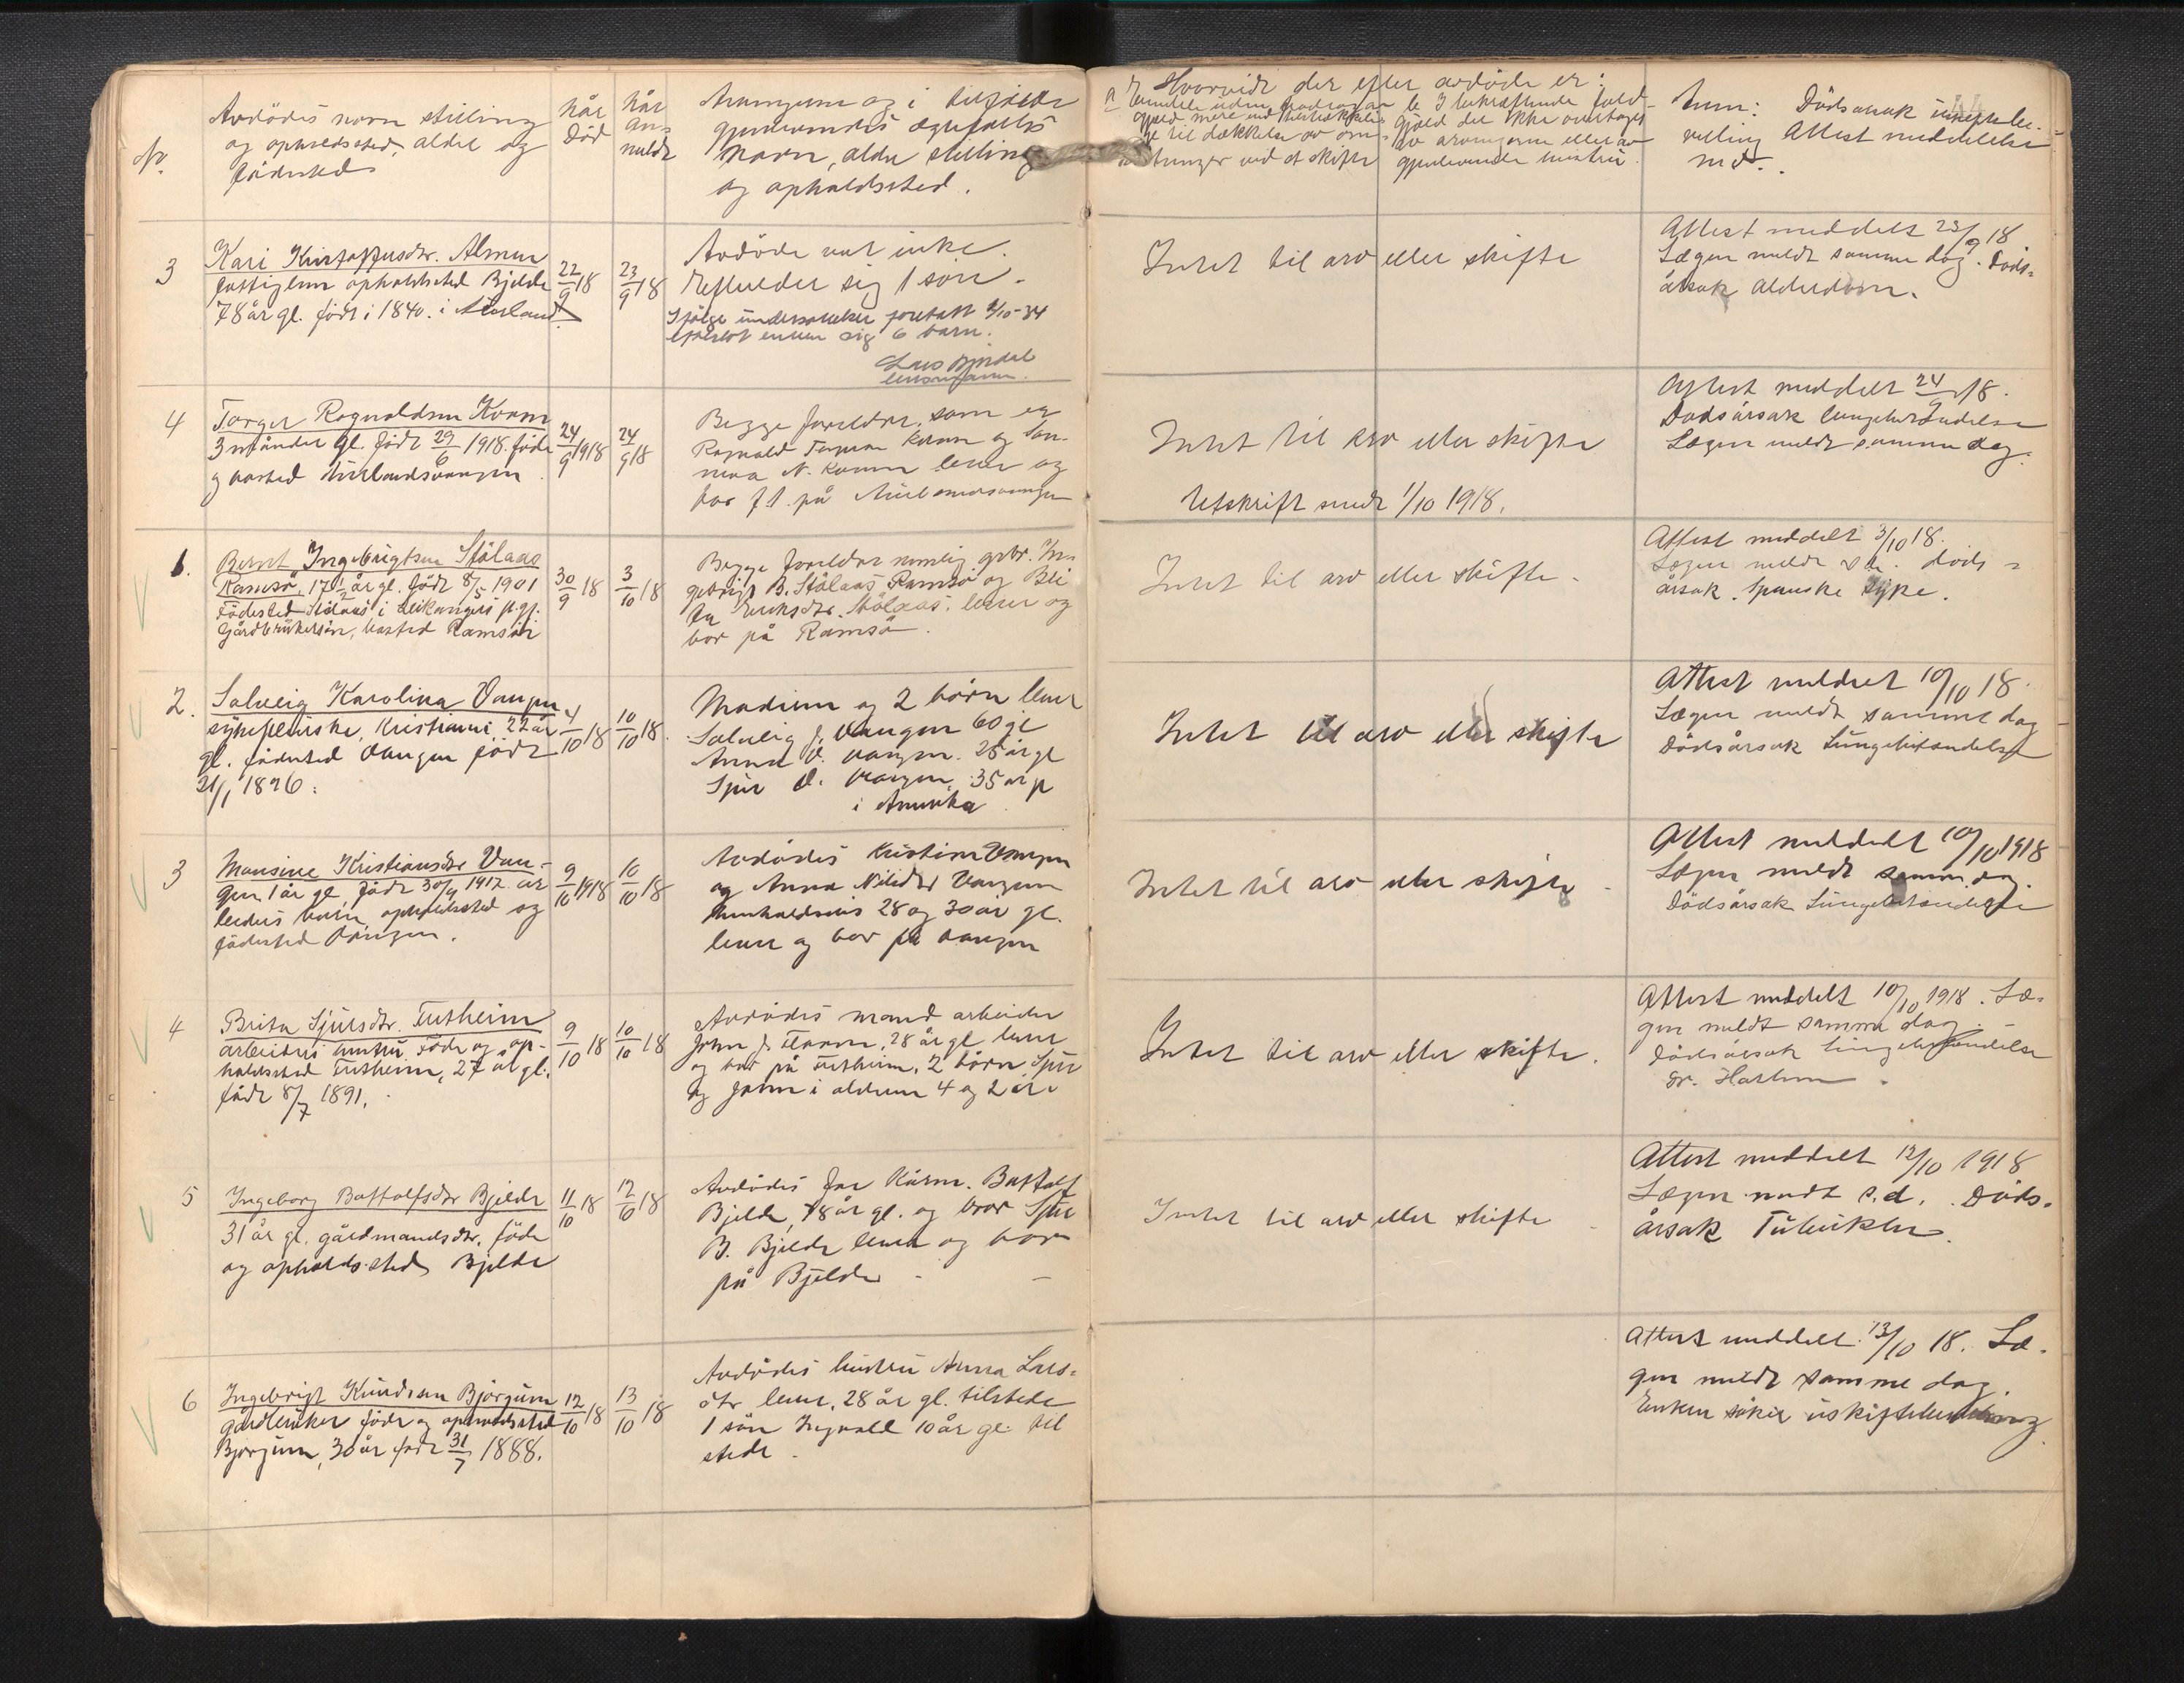 No.
Avdödes navn stilling
og opholdssted, alder og
födested
Når
Död
Når
an-
meldt
Arvingerne og i tilfælde
gjenlevendes ægtefælles
Navn, alder stilling
og opholdssted.
Hvorvidt der efter avdöde er:
Anm: Dödsårsak
Attest meddelelse
m.v.
3
Kari Kristoffersdtr. Almen
fattiglem opholdssted Bjelde
78 år gl. födt i 1840. i Aurland
22/9 18
23/9 18
Avdöde var enke.
Efterlader sig 1 sön.
Ifölge undersökelse foretatt 4/10-34
efterlot enken sig 6 barn.
Lars Bjindal
lensmann.
Intet til arv eller skifte
Attest meddelt 23/9 18
Lægen meldt samme dag. Döds-
årsak Alderdom.
4
Torger Ragnvaldsen Kvam
3 måneder gl. födt 29/6 1918. föde
og bosted Aurlandsvangen
24/9 1918
24/9 18
Begge foreldre, som er
Ragnvald Torgersen Kvam og
N. Kvam lever og
bor f.t. på Aurlandsvangen
Intet til arv eller skifte
Utskrift sendt 1/10 1918.
Attest meddelt 24/9 18.
Dödsårsak lungebetændelse
Lægen meldt samme dag.
1.
Bernt Ingebrigtsen Stölaas
Ramsö, 17 1/2 år gl. födt 8/5 1901
Födested Stölaas i Leikanger p.gj.
Gårdbrukersön, bosted Ramsöi
30/9 18
3/10 18
Begge foreldre nemlig gbr. In-
gebrigt B. Stölaas Ramsö og
Eriksdtr. Stölaas. lever og
bor på Ramsö.
Intet til arv eller skifte.
Attest meddelt 3/10 18.
Lægen meldt s.d. döds-
årsak. Spanske syke.
2.
Solveig Karolina Vangen
sykepleierske, Kristiania, 22 år
gl. födested Vangen födt
21/1 1896.
4/10 18
10/10 18.
Moderen og 2 börn lever
Solveig J. Vangen 60 gl
Anna O. Vangen. 25 år gl
Sjur O. Vangen. 35 år gl
i Amerika
Intet til arv eller skifte
Attest meddelt 10/10 18.
Lægen meldt samme dag
Dödsårsak Lungebetændelse
3
Monsine Kristiansdtr Van-
gen 1 år gl, födt 30/9 1917. ar
beiders barn, opholdssted og
födested Vangen.
9/10 1918
10/10 18
Avdödes Kristian Vangen
og Anna Nilsdtr Vangen
henholdsvis 28 og 30 år gl.
lever og bor på Vangen
Intet til arv eller skifte
Attest meddelt 10/10 1918
Lægen meldt samme dag.
Dödsårsak Lungebetændelse
4
Brita Sjursdtr. Tutheim
arbeiders hustru. Föde og op-
holdssted Tutheim, 27 år gl.
födt 8/7 1891.
9/10 18
10/10 18
Avdödes mand arbeider
John J. Flaam, 28 år gl lever
og bor på Tutheim. 2 börn Sjur
og John i alderen 4 og 2 år
Intet til arv eller skifte.
Attest meddelt 10/10 1918. Læ-
gen meldt samme dag.
Dödsårsak lungebetændelse
5
Ingeborg Bottolfsdtr Bjelde
31 år gl. gårdmandsdtr. föde
og opholdssted Bjelde
11/10 18
12/10 18
Avdödes far Kårm. Bottolf
Bjelde, 78 år gl. og bror Sjur
B. Bjelde lever og bor
på Bjelde
Intet til arv eller skifte
Attest meddelt 12/10 1918
Lægen meldt s.d. Döds-
årsak Tuberkler.
6
Ingebrigt Knudsen Bjørgum
gårdbruker föde og opholdssted
Bjørgum, 30 år födt 31/7 1888.
12/10 18
13/10 18
Avdödes hustru Anna Lars-
dtr lever, 28 år gl. tilstede
1 sön Ingvald 10 år gl. til
stede.
Attest meddelt 13/10 18. Læ-
gen meldt samme dag.
Enken söker